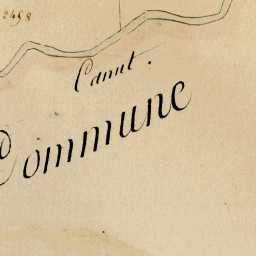 2498
Canut.
Commune